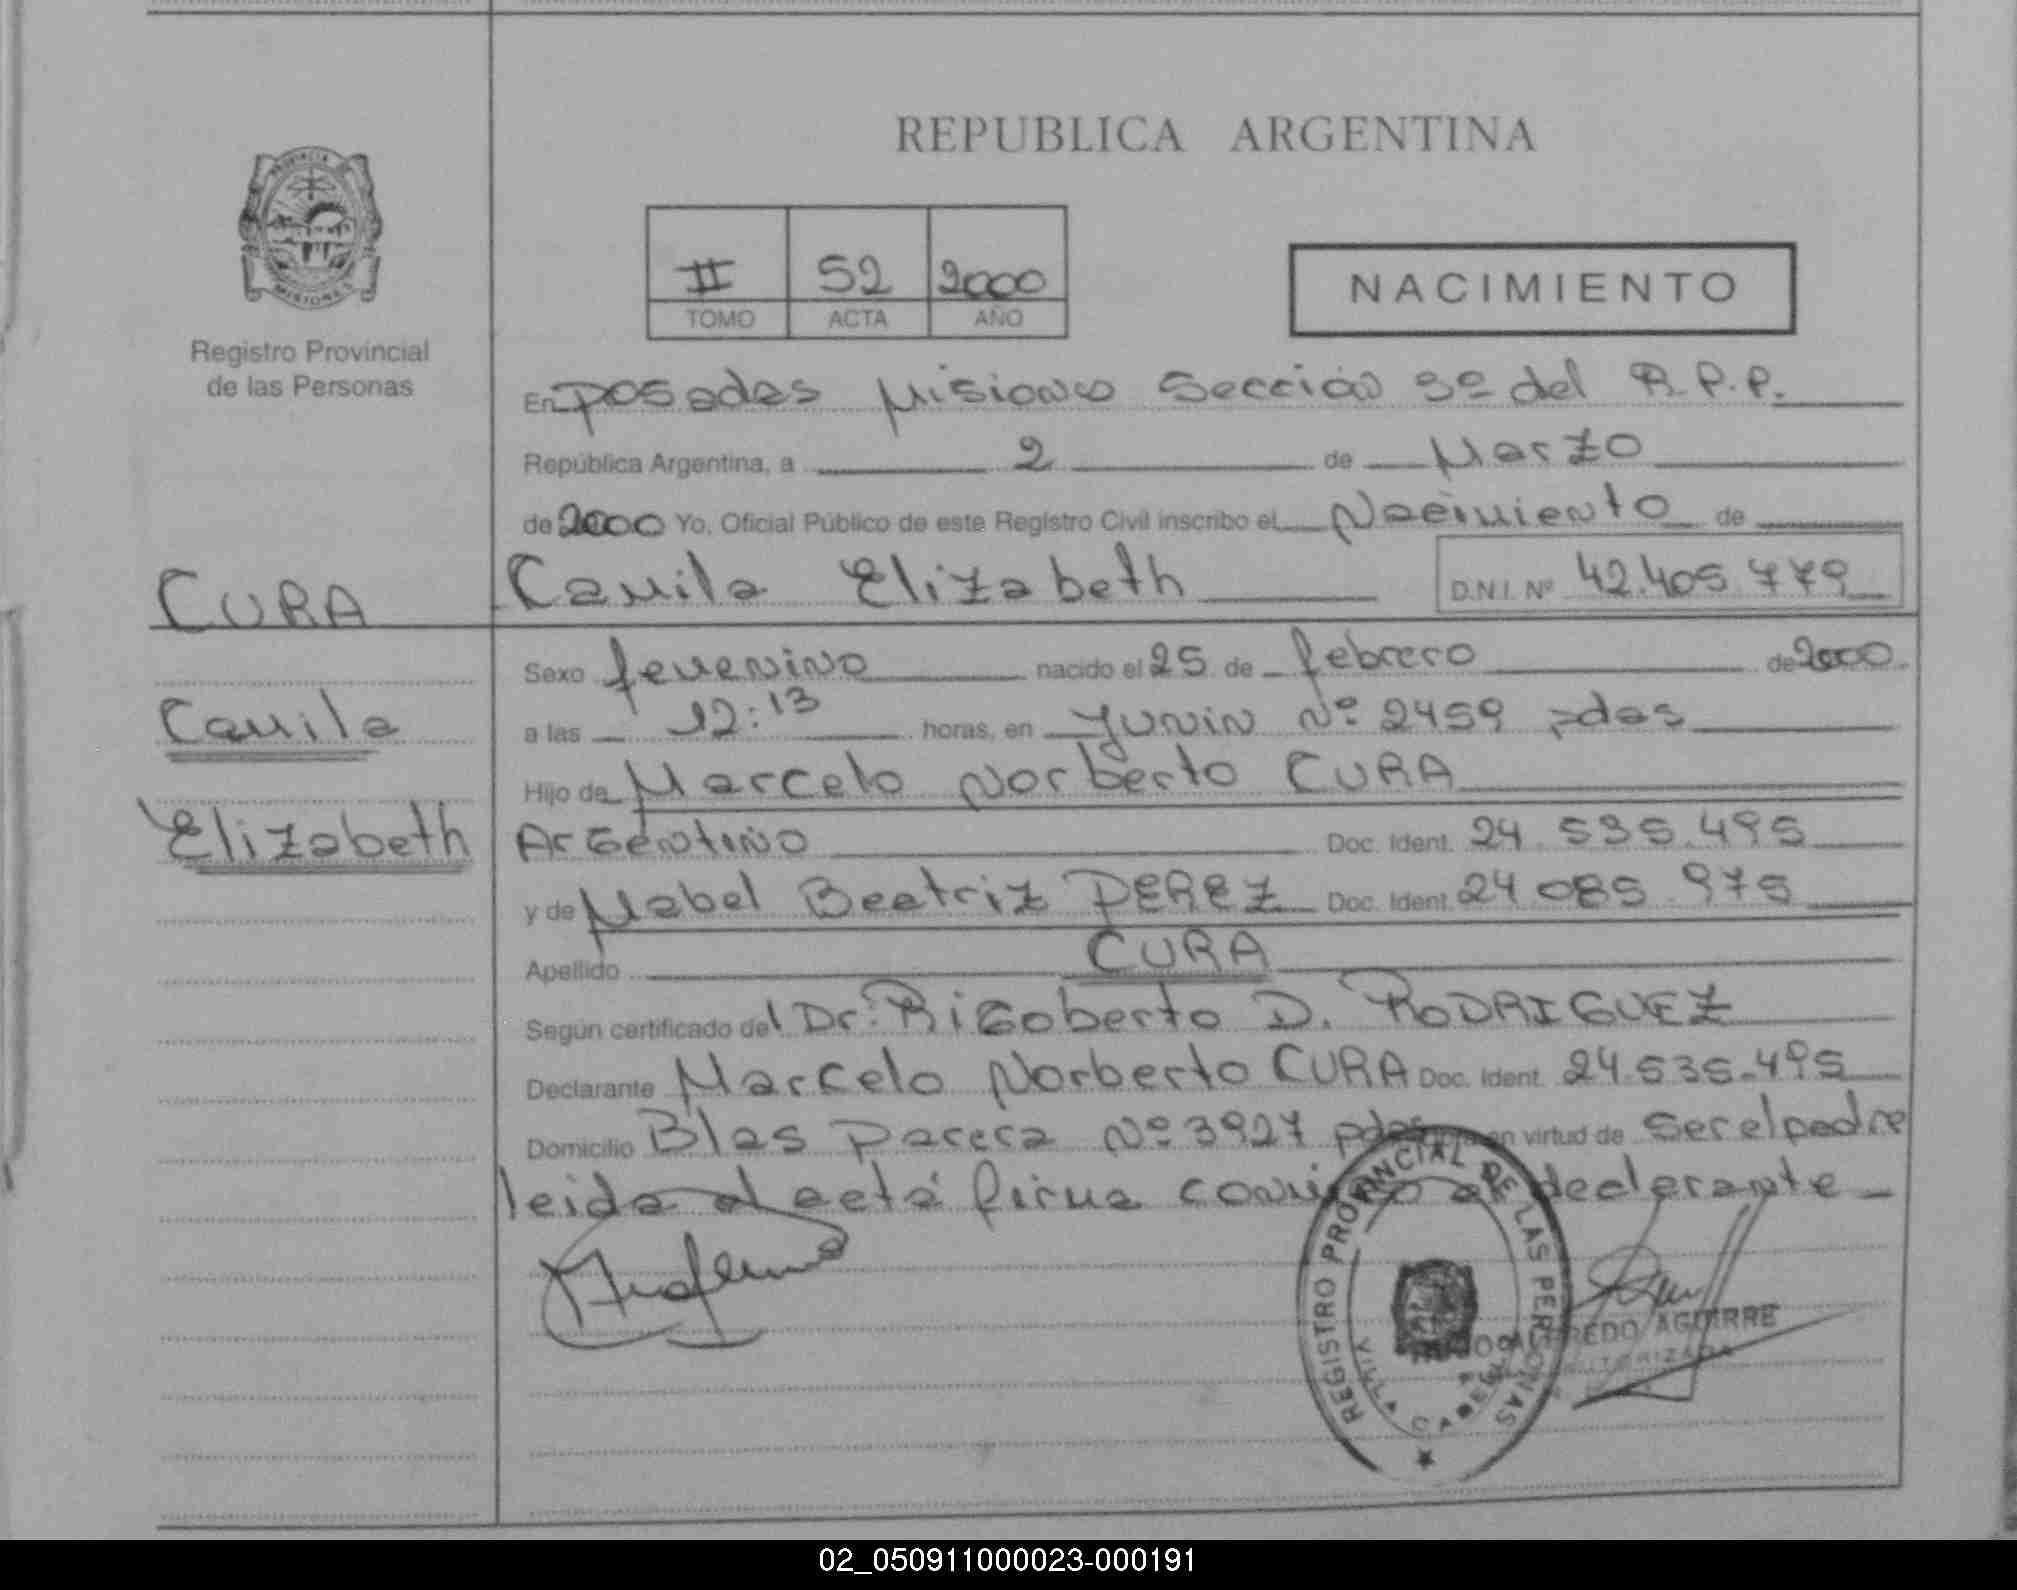 REPUBLICA ARGENTINA
PROVINCIA
MISIONES
Registro Provincial
de las Personas
II 52 2000
TOMO ACTA AÑO
NACIMIENTO
En Posadas Misiones Sección 3º del R.P.P.
República Argentina, a 2 de Marzo
de 2000 Yo, Oficial Público de este Registro Civil inscribo el Nacimiento de
Camila Elizabeth D.N.I. Nº 42.405.779
CURA
Camila
Elizabeth
Sexo femenino nacido el 25 de febrero de 2000
a las 12:13 horas, en Junin Nº 2459 pdas
Hijo de Marcelo Norberto CURA
Argentino Doc. Ident. 24.535.495
y de Mabel Beatriz PEREZ Doc. Ident. 24 085.975
Apellido CURA
Según certificado del Dr. Rigoberto D. RODRIGUEZ
Declarante Marcelo Norberto CURA Doc. Ident. 24.535.495
Domicilio Blas Parera Nº 3927 pdas en virtud de ser el padre
leida el acta firma conmigo el declarante
REGISTRO PROVINCIAL DE LAS PERSONAS
VILLA CABELLO
ALFREDO AGUIRRE
AUTORIZADA
02_050911000023-000191